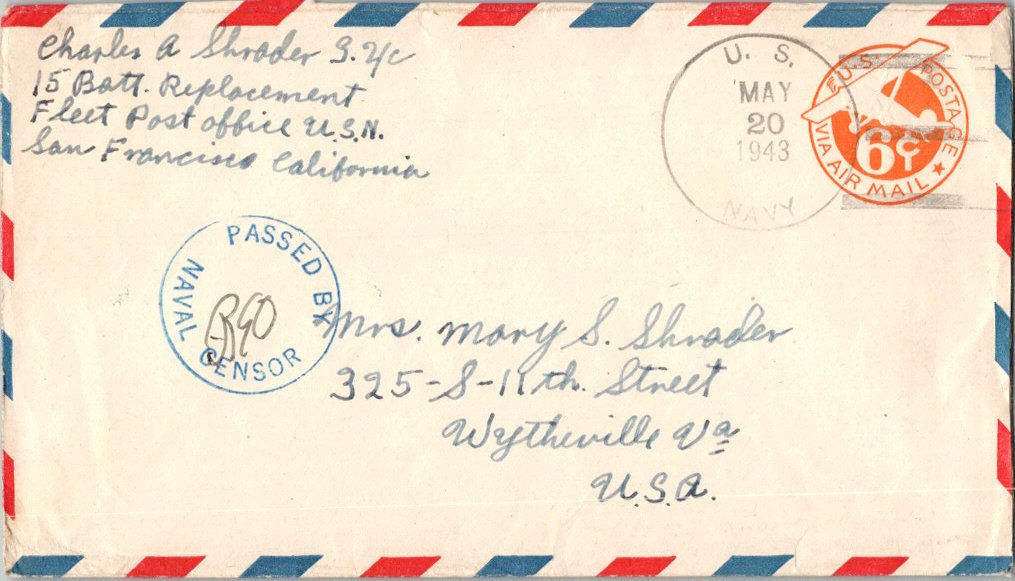 Charles A Shrader S. 2/c
15 Batt. Replacement
Fleet Post office U.S.N.
San Francisco California
U. S.
MAY
20
1943
NAVY
U.S. POSTAGE
6¢
VIA AIR MAIL
PASSED BY
NAVAL CENSOR
Mrs. Mary S. Shrader
325-S-11th. Street
Wytheville Va
U.S.A.